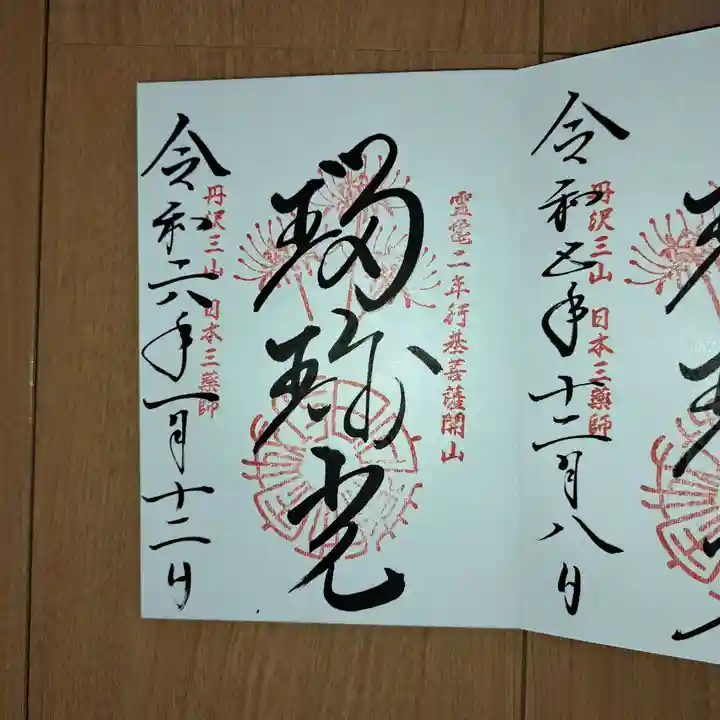 令和五年十二月八日
丹沢三山 日本三薬師
霊亀二年行基菩薩開山
瑠璃光
丹沢三山 日本三薬師
令和六年一月十二日